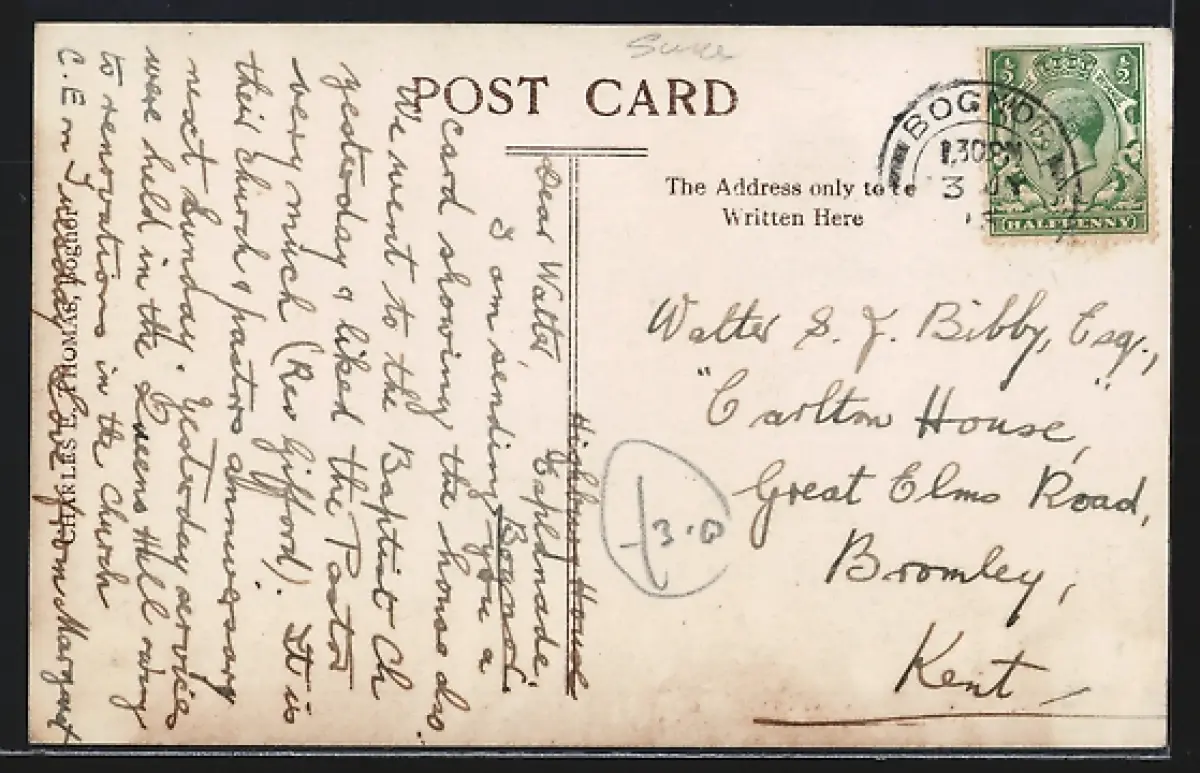 POST CARD
The Address only to be
Written Here
BOGNOR
1.30 PM
3 JY
½ ½
HALFPENNY
Walter S. J. Bibby, Esq.,
"Carlton House,"
Great Elms Road,
Bromley,
Kent
3.0
Highbury House
Esplanade,
Bognor.
Dear Walter,
I am sending you a
card showing the house also.
We went to the Baptist Ch
yesterday & liked the Pastor
very much (Rev Gifford). It is
their church & pastors anniversary
next Sunday. Yesterday services
were held in the Queens Hall owing
to renovations in the Church
C.E on Tuesday. Love from Margaret
CHARLES E. THOMAS, Bognor